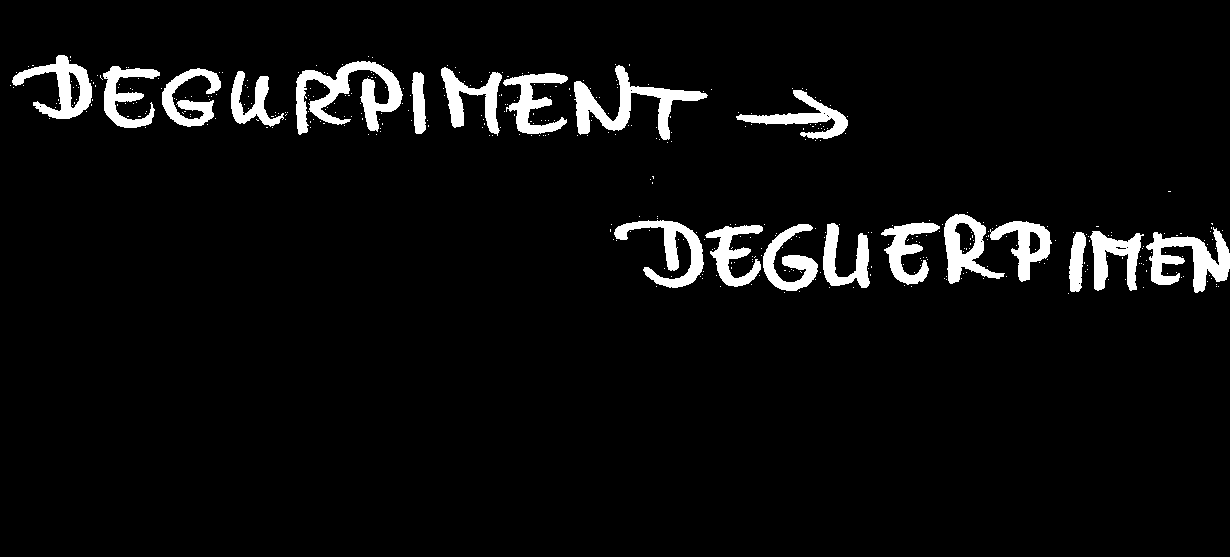 DEGURPIMENT →
DEGUERPIMEN